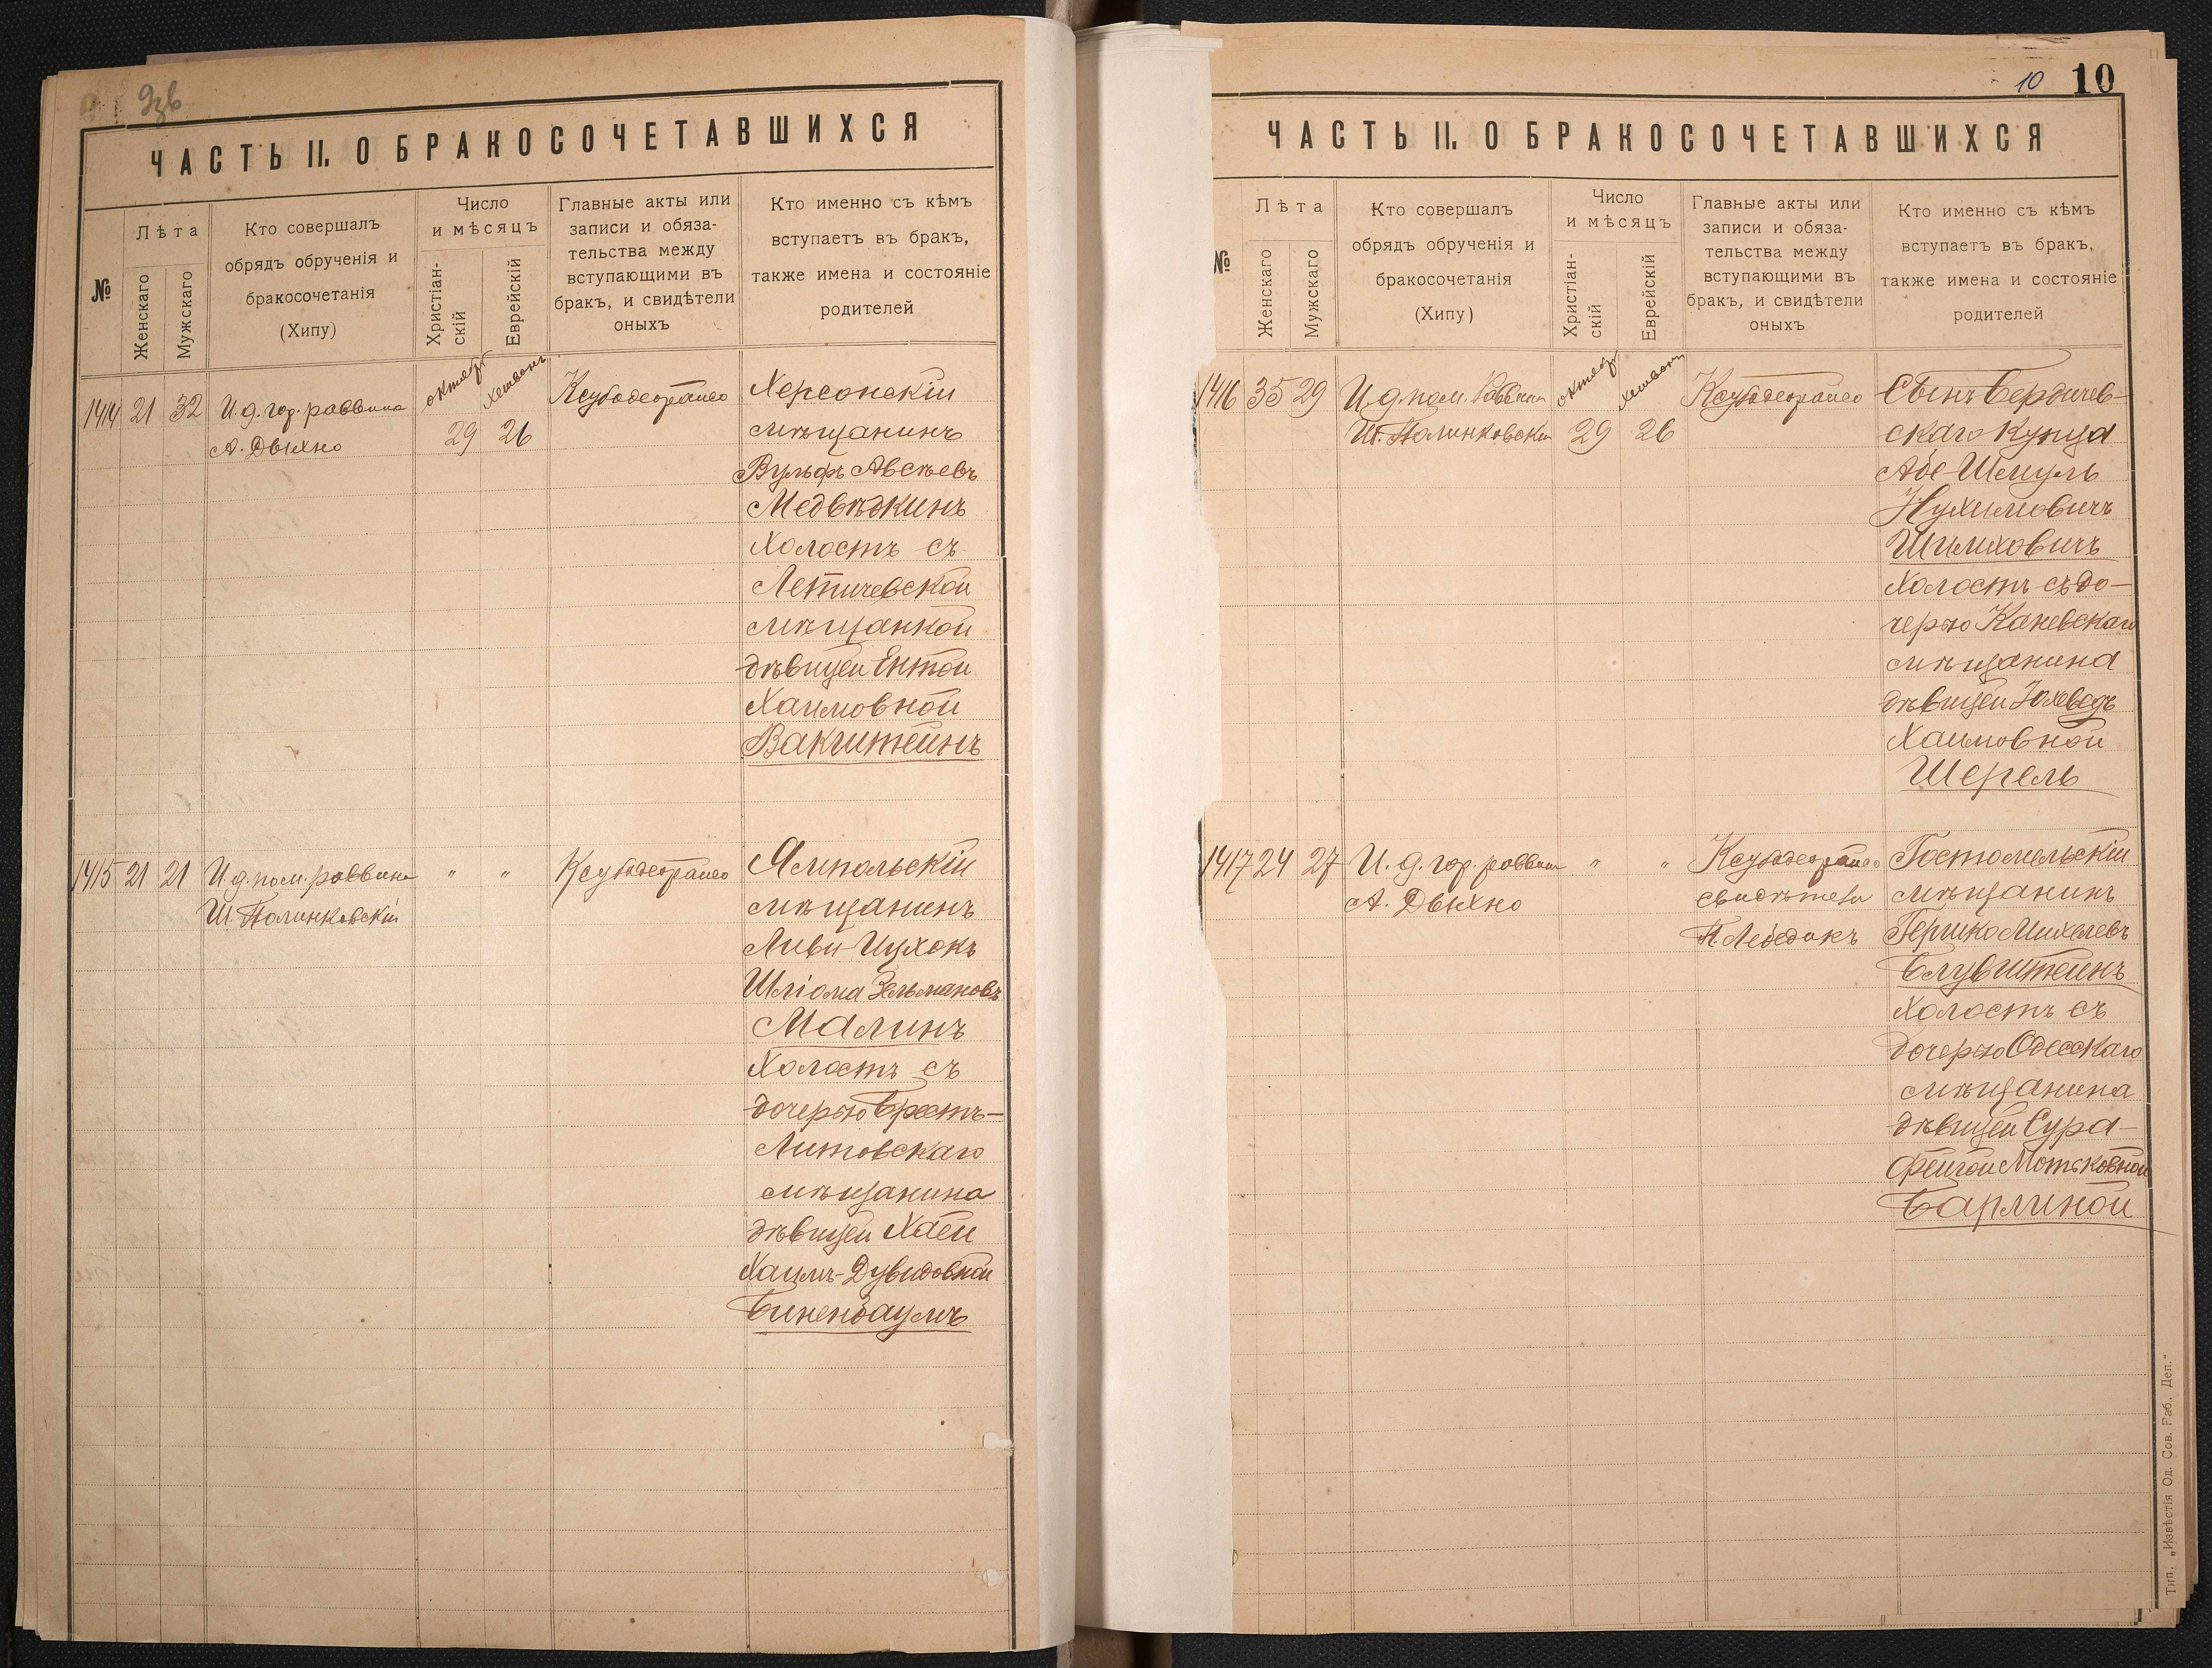 ЧАСТЬ II. О БРАКОСОЧЕТАВШИХСЯ
№
Лѣта
Женскаго
Мужскаго
Кто совершалъ
обрядъ обрученія и
бракосочетанія
(Хипу)
Число
и мѣсяцъ
Христіан-
скій
Еврейскій
Главные акты или
записи и обяза-
тельства между
вступающими въ
бракъ, и свидѣтели
оныхъ
Кто именно съ кѣмъ
вступаетъ въ бракъ,
также имена и состояніе
родителей
1414 21 32
И. д. гор. раввина
А. Дыхно
октябр
29
хешвонъ
26
Ксубодеорайсо
Херсонскій
мѣщанинъ
Вульфъ Авсѣевъ
Медвѣдкинъ
холостъ съ
Летичевской
мѣщанкой
дѣвицей Ентой
Хаимовной
Вакштейнъ
1415 21 21
И. д. пом. раввина
Ш. Полинковскій
" "
Ксубодеорайсо
Ямпольскій
мѣщанинъ
Ливи-Ицхокъ
Шліома Зельмановъ
Малинъ
холостъ съ
дочерью Брестъ-
Литовскаго
мѣщанина
дѣвицей Хаей
Хаимъ-Дувидовной
Биненбаумъ
10 10
ЧАСТЬ II. О БРАКОСОЧЕТАВШИХСЯ
№
Лѣта
Женскаго
Мужскаго
Кто совершалъ
обрядъ обрученія и
бракосочетанія
(Хипу)
Число
и мѣсяцъ
Христіан-
скій
Еврейскій
Главные акты или
записи и обяза-
тельства между
вступающими въ
бракъ, и свидѣтели
оныхъ
Кто именно съ кѣмъ
вступаетъ въ бракъ,
также имена и состояніе
родителей
1416 35 29
И. д. пом. Раввина
Ш. Полинковскій
октябр
29
хешвонъ
26
Ксубодеорайсо
Сынъ Бердичев-
скаго Купца
Абе-Шмуль
Нухимовичъ
Шмиховичъ
холостъ съ до-
черью Каневскаго
мѣщанина
дѣвицей Іохеведъ
Хаимовной
Шерель
1417 24 27
И. д. гор. раввина
А. Дыхно
" "
Ксубодеорайсо
свидѣтели
П. Лебедокъ
Гостомельскій
мѣщанинъ
Гершко Михелевъ
Блувштейнъ
холостъ съ
дочерью Одесскаго
мѣщанина
дѣвицей Сура-
Фейгой Мотьковной
Барлиной
Тип. „Извѣстія Од. Сов. Раб. Деп."